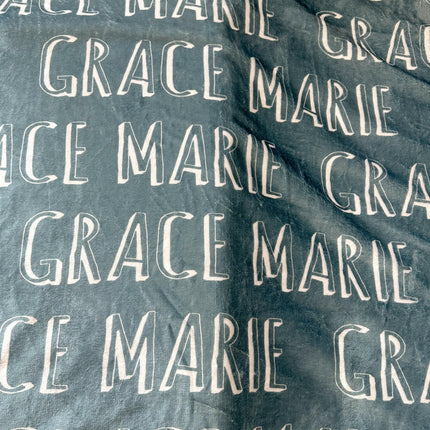 ACE MARIE GRACE
GRACE MARIE
ACE MARIE GRA
GRACE MARIE
CE MARIE GRA